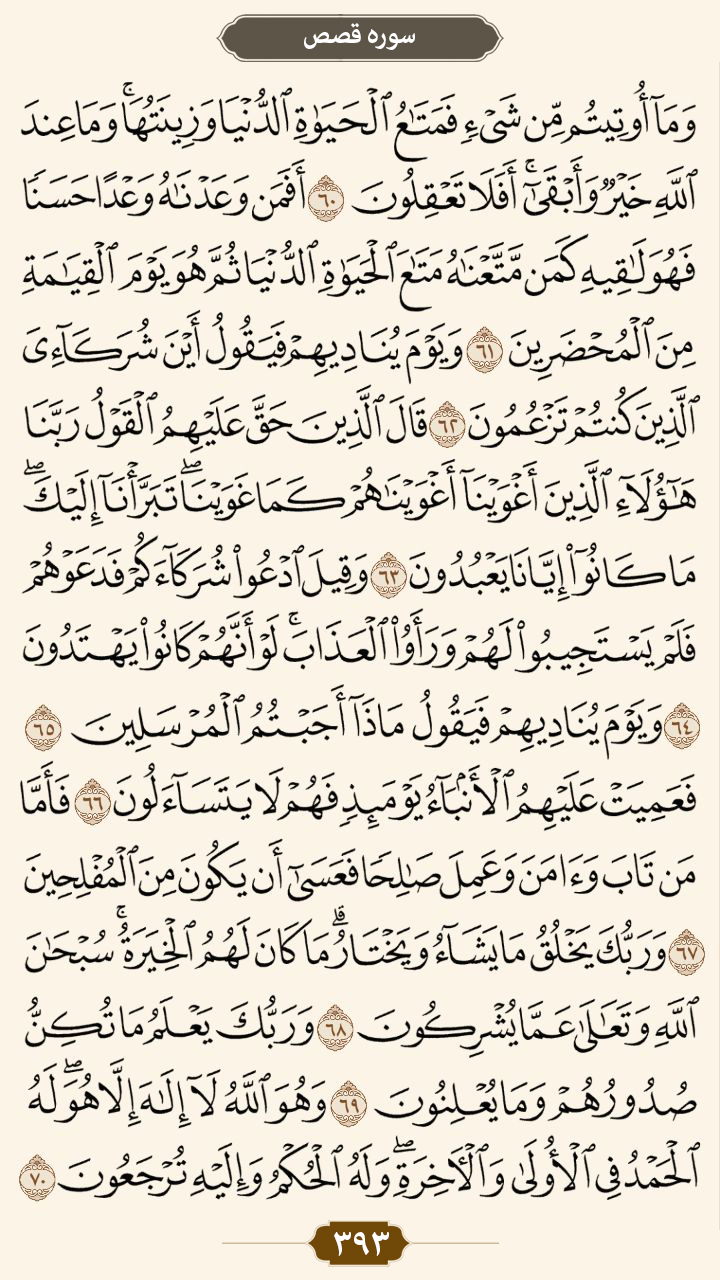 سوره قصص
وَمَآ أُوتِيتُم مِّن شَىْءٍ فَمَتَـٰعُ ٱلْحَيَوٰةِ ٱلدُّنْيَا وَزِينَتُهَاۚ وَمَا عِندَ
ٱللَّهِ خَيْرٌ وَأَبْقَىٰٓۚ أَفَلَا تَعْقِلُونَ ٦٠ أَفَمَن وَعَدْنَـٰهُ وَعْدًا حَسَنًا
فَهُوَ لَـٰقِيهِ كَمَن مَّتَّعْنَـٰهُ مَتَـٰعَ ٱلْحَيَوٰةِ ٱلدُّنْيَا ثُمَّ هُوَ يَوْمَ ٱلْقِيَـٰمَةِ
مِنَ ٱلْمُحْضَرِينَ ٦١ وَيَوْمَ يُنَادِيهِمْ فَيَقُولُ أَيْنَ شُرَكَآءِىَ
ٱلَّذِينَ كُنتُمْ تَزْعُمُونَ ٦٢ قَالَ ٱلَّذِينَ حَقَّ عَلَيْهِمُ ٱلْقَوْلُ رَبَّنَا
هَـٰٓؤُلَآءِ ٱلَّذِينَ أَغْوَيْنَآ أَغْوَيْنَـٰهُمْ كَمَا غَوَيْنَاۖ تَبَرَّأْنَآ إِلَيْكَۖ
مَا كَانُوٓا۟ إِيَّانَا يَعْبُدُونَ ٦٣ وَقِيلَ ٱدْعُوا۟ شُرَكَآءَكُمْ فَدَعَوْهُمْ
فَلَمْ يَسْتَجِيبُوا۟ لَهُمْ وَرَأَوُا۟ ٱلْعَذَابَۚ لَوْ أَنَّهُمْ كَانُوا۟ يَهْتَدُونَ
٦٤ وَيَوْمَ يُنَادِيهِمْ فَيَقُولُ مَاذَآ أَجَبْتُمُ ٱلْمُرْسَلِينَ ٦٥
فَعَمِيَتْ عَلَيْهِمُ ٱلْأَنۢبَآءُ يَوْمَئِذٍ فَهُمْ لَا يَتَسَآءَلُونَ ٦٦ فَأَمَّا
مَن تَابَ وَءَامَنَ وَعَمِلَ صَـٰلِحًا فَعَسَىٰٓ أَن يَكُونَ مِنَ ٱلْمُفْلِحِينَ
٦٧ وَرَبُّكَ يَخْلُقُ مَا يَشَآءُ وَيَخْتَارُۗ مَا كَانَ لَهُمُ ٱلْخِيَرَةُۚ سُبْحَـٰنَ
ٱللَّهِ وَتَعَـٰلَىٰ عَمَّا يُشْرِكُونَ ٦٨ وَرَبُّكَ يَعْلَمُ مَا تُكِنُّ
صُدُورُهُمْ وَمَا يُعْلِنُونَ ٦٩ وَهُوَ ٱللَّهُ لَآ إِلَـٰهَ إِلَّا هُوَۖ لَهُ
ٱلْحَمْدُ فِى ٱلْأُولَىٰ وَٱلْـَٔاخِرَةِۖ وَلَهُ ٱلْحُكْمُ وَإِلَيْهِ تُرْجَعُونَ ٧٠
٣٩٣